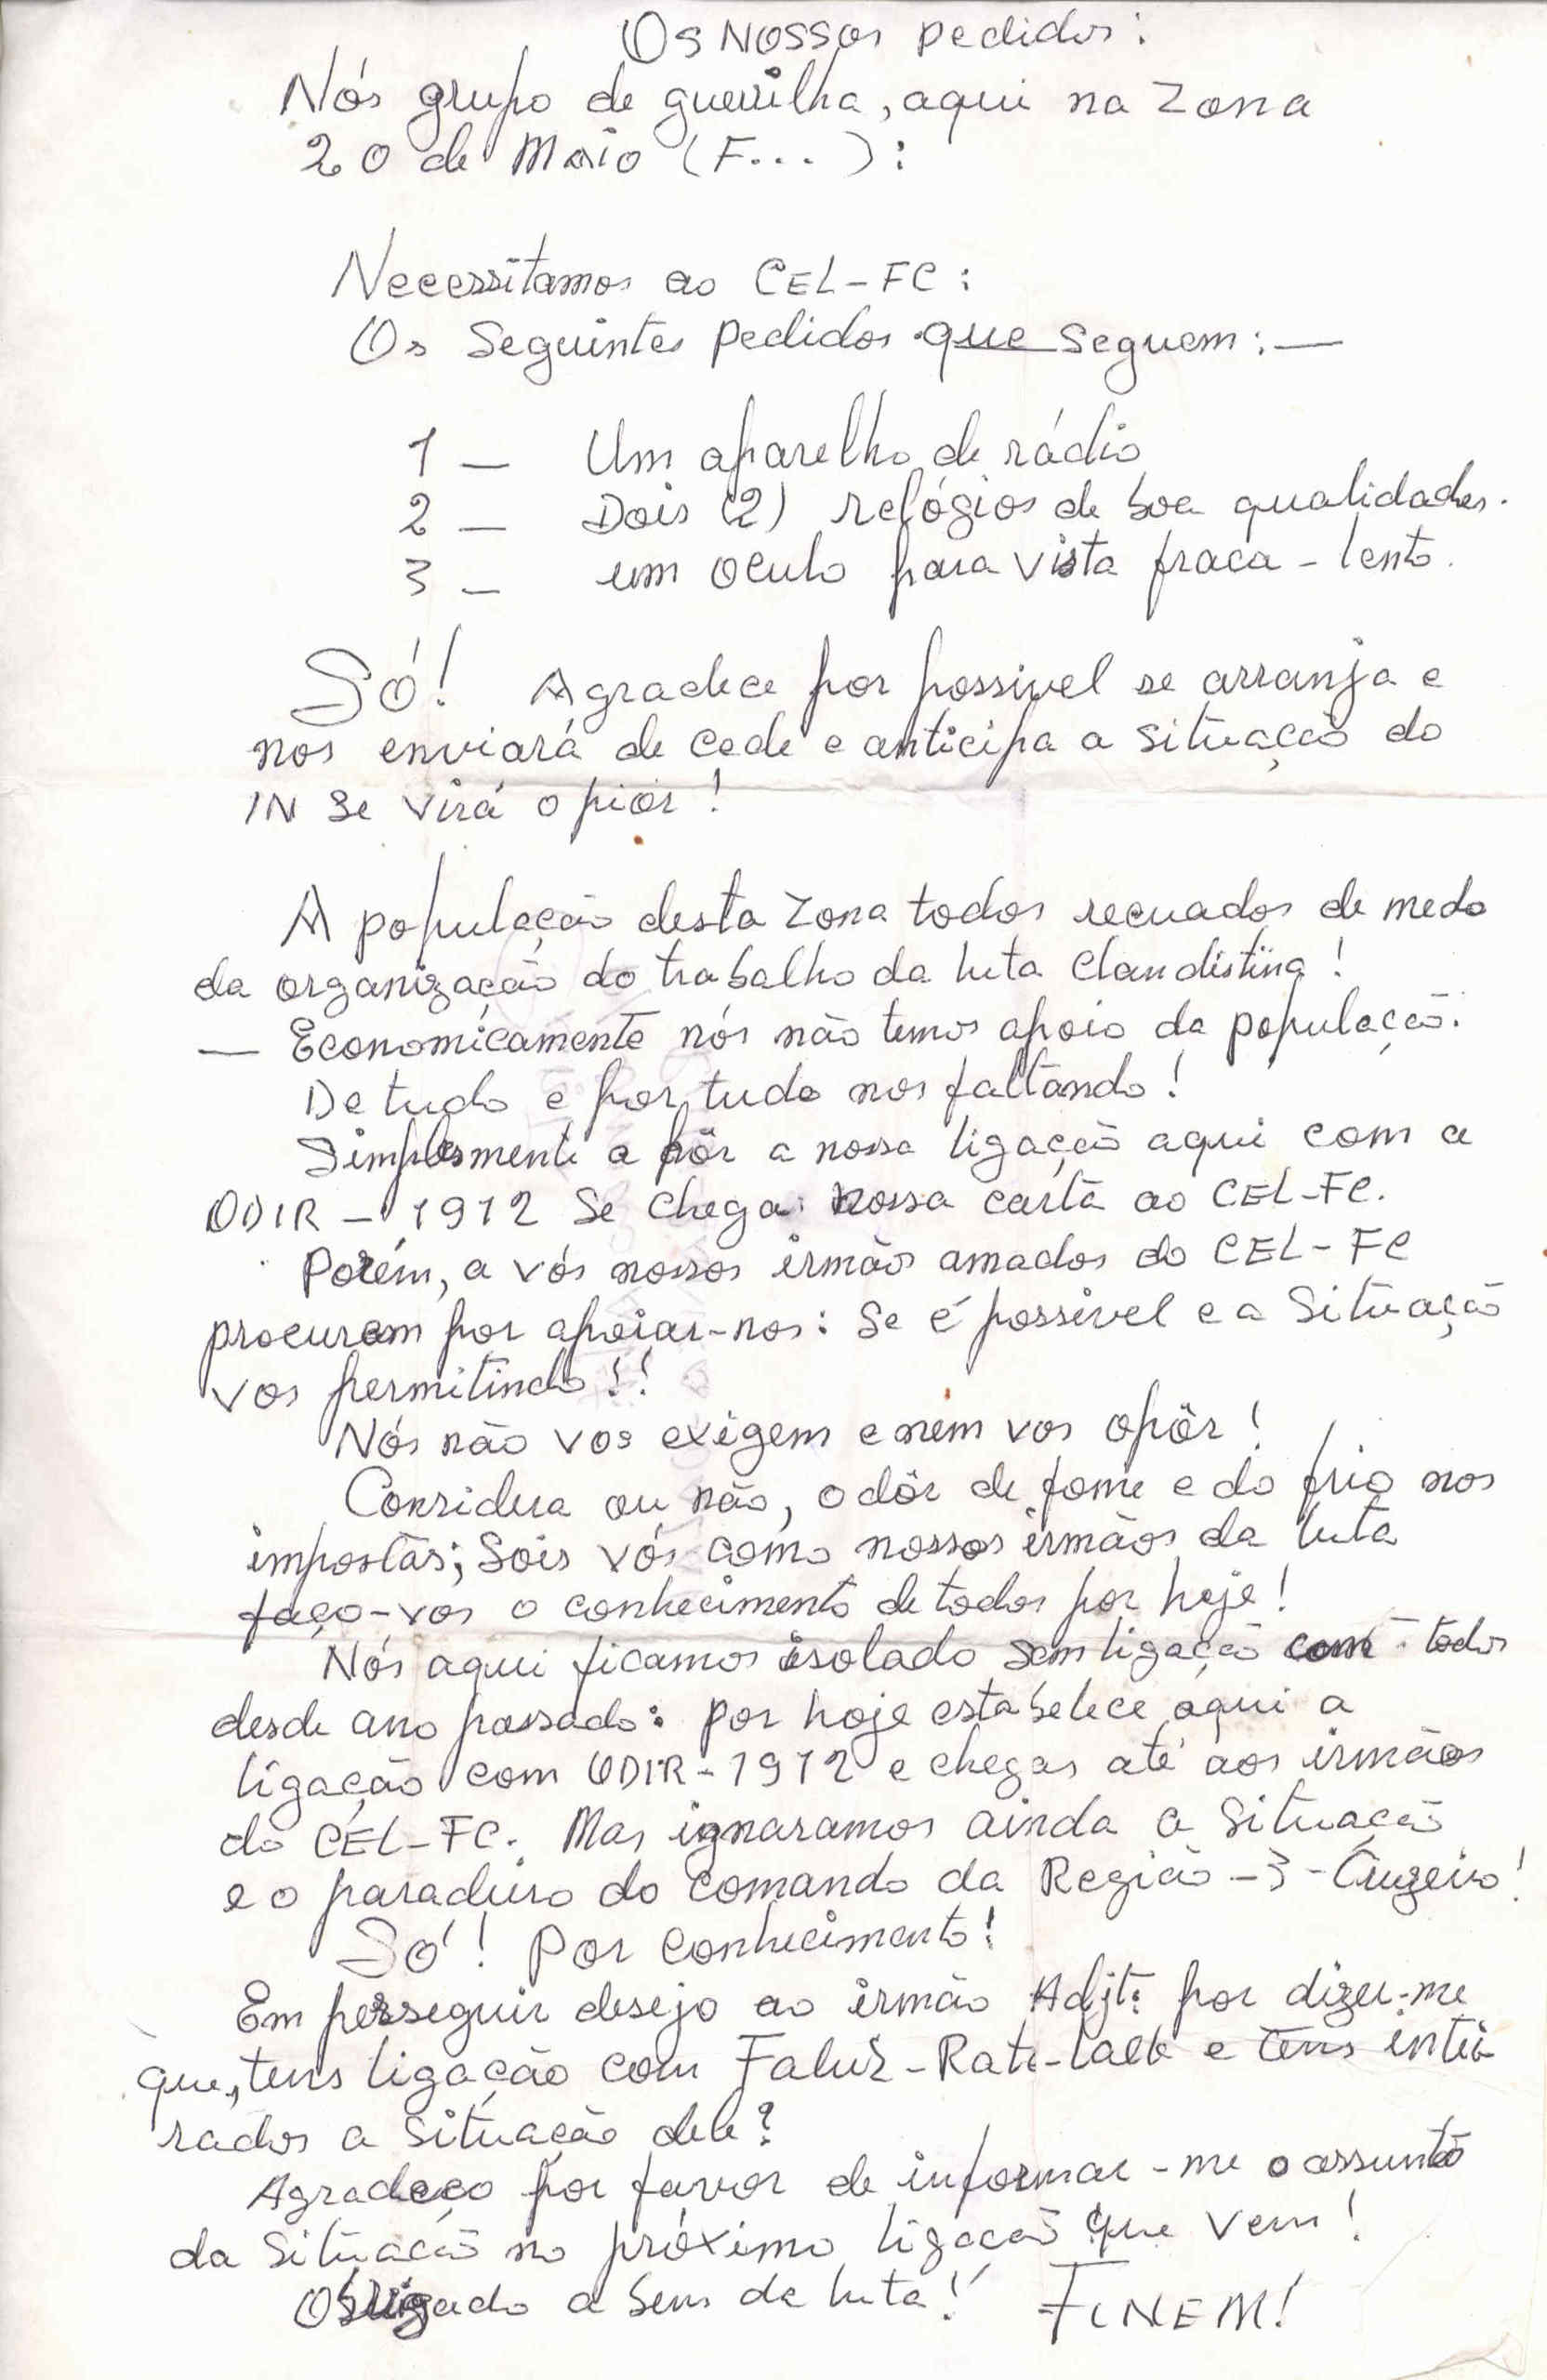 Os Nossos pedidos:
Nós grupo de guerrilha, aqui na Zona
20 de Maio (F...):
Necessitamos ao CEL-FC:
Os Seguintes pedidos que Seguem:—
1 — Um aparelho de rádio
2 — Dois (2) relógios de boa qualidades.
3 — um oculo para vista fraca - lento.
Só! Agradece por possivel se arranja e
nos enviará de cede e anticipa a situação do
IN se virá o pior!
A população desta Zona todos recuados de medo
da organização do trabalho da luta Clandistina!
— Economicamente nós não temos apoio da população.
De tudo e por tudo nos faltando!
Simplesmente a pôr a nossa ligação aqui com a
ODIR - 1912 Se chega nossa carta ao CEL-FC.
Porém, a vós nossos irmãos amados do CEL-FC
procuram por apoiar-nos: Se é possivel e a Situação
vos permitindo!!
Nós não vos exigem e nem vos opôr!
Considera ou não, o dôr de fome e do frio nos
impostas; Sois vós como nossos irmãos da luta
faço-vos o conhecimento de todos por hoje!
Nós aqui ficamos isolado sem ligação com todos
desde ano passado: por hoje estabelece aqui a
ligação com ODIR-1912 e chegas até aos irmãos
do CEL-FC. Mas ignaramos ainda a Situação
e o paradeiro do comando da Região-3-Cruzeiro!
Só! Por conhecimento!
Em perseguir desejo ao irmão Adjt: por dizer-me
que, tens ligação com Faluk-Rate-Laek e tens intei
rados a situação dele?
Agradeço por favor de informar-me o assunto
da Situação no próximo ligação que vem!
Obrigado a bem da luta! FINEM!